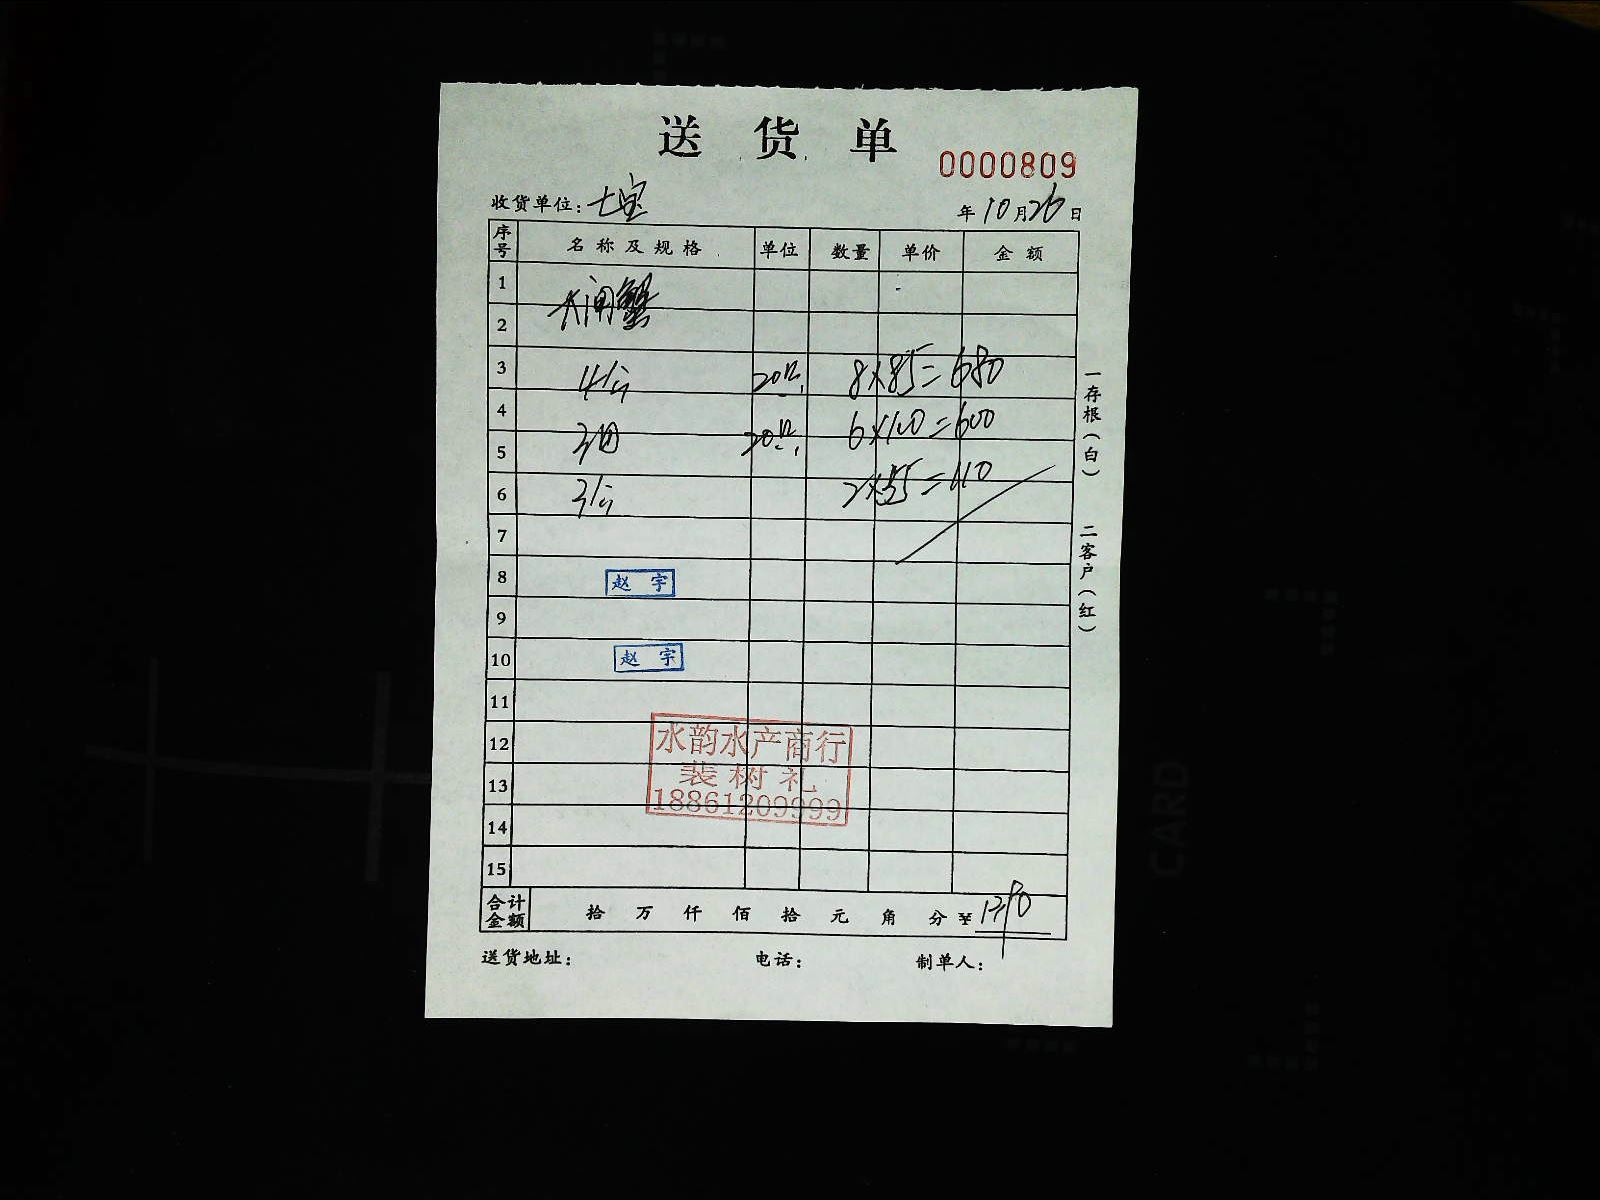 送货单
0000809
收货单位：七宝
年10月26日
序号 名称及规格 单位 数量 单价 金额
1
大闸蟹
2
3 4公 20只 8×85=680
4
3母 20只 6×100=600
5
6 3公 2×55=110
7
8 赵宇
9
10 赵宇
11
12 水韵水产商行
13 裴树礼
18861209999
14
15
合计金额 拾万仟佰拾元角分￥1390
送货地址： 电话： 制单人：
一存根（白） 二客户（红）
CARD